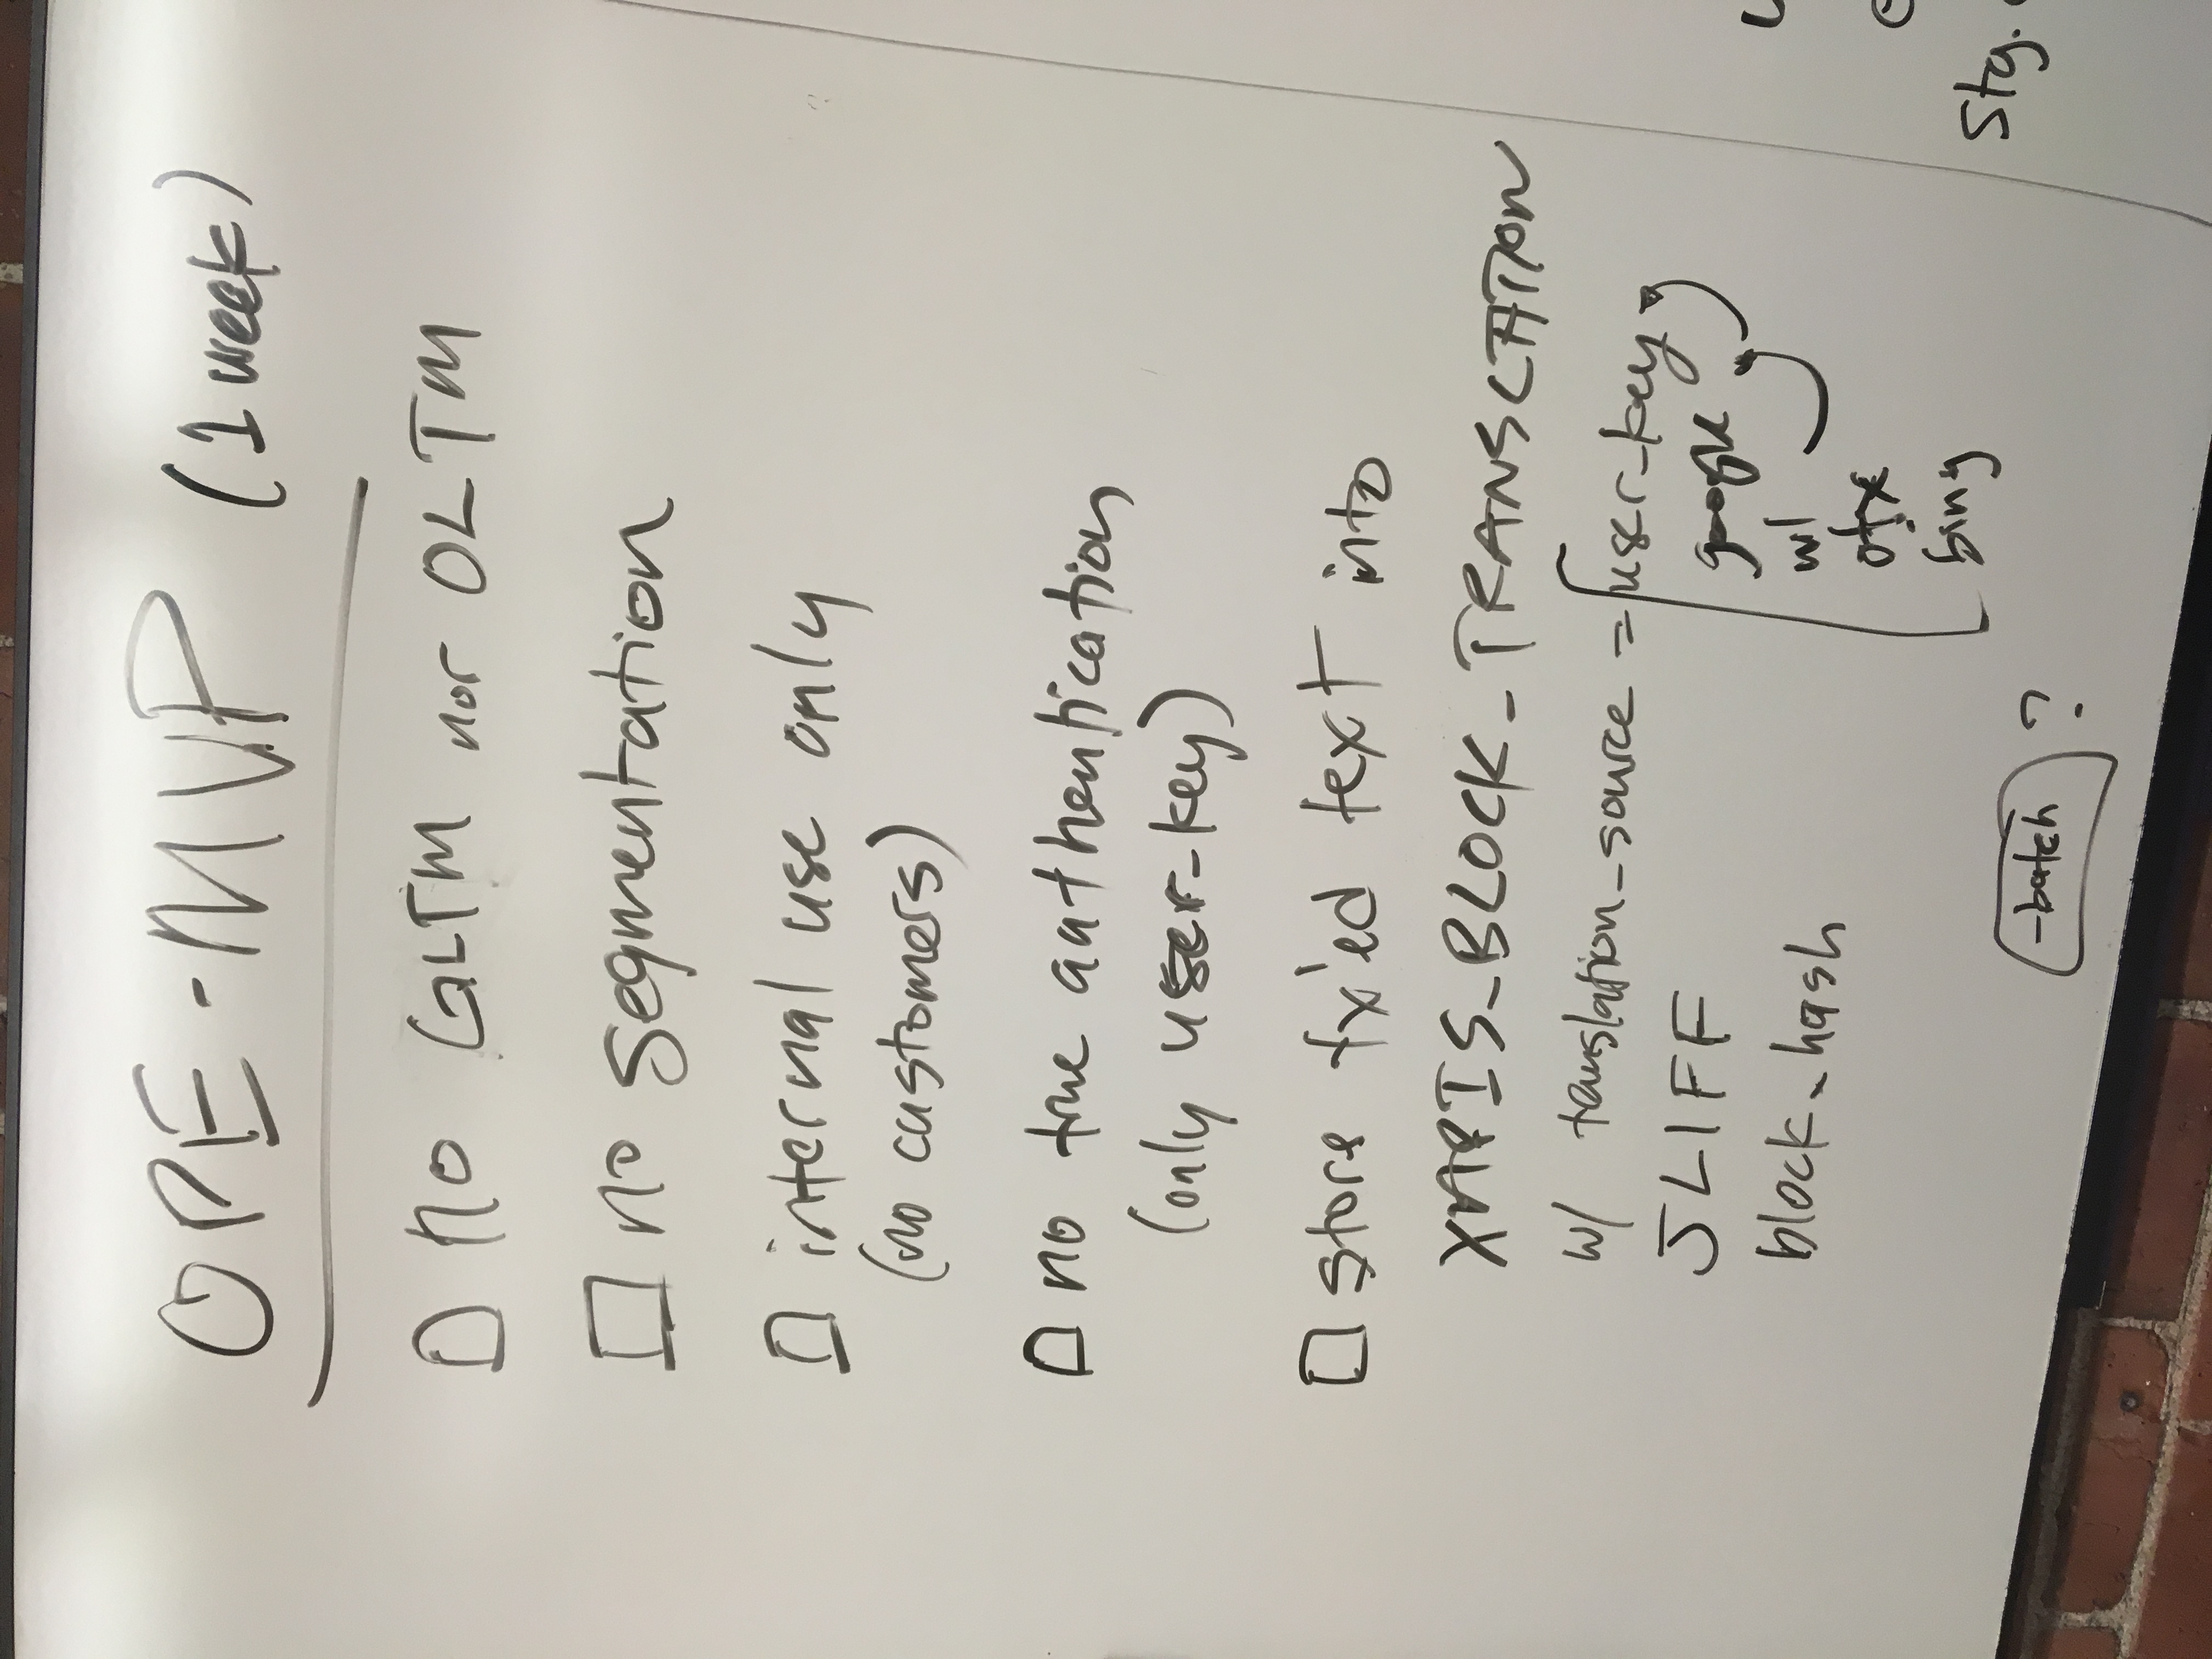 OPE - MVP (1 week)
no GLTM nor OLTM
no segmentation
internal use only
(no customers)
no true authentication
(only user-key)
store tx'ed text into
XAPIS_BLOCK-TRANSLATION
w/ translation-source = user-key
google
ml
otx
bing
JLIFF
block-hash
-batch ?
stg.